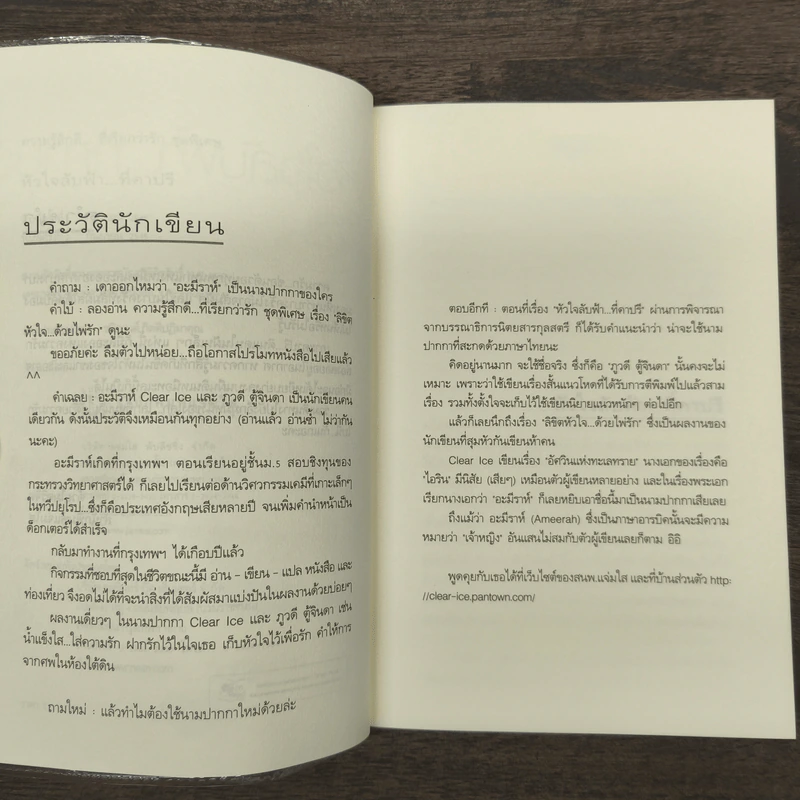 ประวัตินักเขียน
คำถาม : เดาออกไหมว่า "อะมีราห์" เป็นนามปากกาของใคร
คำใบ้ : ลองอ่าน ความรู้สึกดี...ที่เรียกว่ารัก ชุดพิเศษ เรื่อง "ลิขิต
หัวใจ...ด้วยไฟรัก" ดูนะ
ขออภัยค่ะ ลืมตัวไปหน่อย...ถือโอกาสโปรโมทหนังสือไปเสียแล้ว
^^
คำเฉลย : อะมีราห์ Clear Ice และ ภูวดี ตู้จินดา เป็นนักเขียนคน
เดียวกัน ดังนั้นประวัติจึงเหมือนกันทุกอย่าง (อ่านแล้ว อ่านซ้ำ ไม่ว่ากัน
นะคะ)
อะมีราห์เกิดที่กรุงเทพฯ ตอนเรียนอยู่ชั้นม.5 สอบชิงทุนของ
กระทรวงวิทยาศาสตร์ได้ ก็เลยไปเรียนต่อด้านวิศวกรรมเคมีที่เกาะเล็กๆ
ในทวีปยุโรป...ซึ่งก็คือประเทศอังกฤษเสียหลายปี จนเพิ่มคำนำหน้าเป็น
ด็อกเตอร์ได้สำเร็จ
กลับมาทำงานที่กรุงเทพฯ ได้เกือบปีแล้ว
กิจกรรมที่ชอบที่สุดในชีวิตขณะนี้มี อ่าน - เขียน - แปล หนังสือ และ
ท่องเที่ยว จึงอดไม่ได้ที่จะนำสิ่งที่ได้สัมผัสมาแบ่งปันในผลงานด้วยบ่อยๆ
ผลงานเดี่ยวๆ ในนามปากกา Clear Ice และ ภูวดี ตู้จินดา เช่น
น้ำแข็งใส...ใส่ความรัก ฝากรักไว้ในใจเธอ เก็บหัวใจไว้เพื่อรัก คำให้การ
จากศพในห้องใต้ดิน
ถามใหม่ : แล้วทำไมต้องใช้นามปากกาใหม่ด้วยล่ะ
ตอบอีกที : ตอนที่เรื่อง "หัวใจลับฟ้า...ที่คาปรี" ผ่านการพิจารณา
จากบรรณาธิการนิตยสารกุลสตรี ก็ได้รับคำแนะนำว่า น่าจะใช้นาม
ปากกาที่สะกดด้วยภาษาไทยนะ
คิดอยู่นานมาก จะใช้ชื่อจริง ซึ่งก็คือ "ภูวดี ตู้จินดา" นั้นคงจะไม่
เหมาะ เพราะว่าใช้เขียนเรื่องสั้นแนวโหดที่ได้รับการตีพิมพ์ไปแล้วสาม
เรื่อง รวมทั้งตั้งใจจะเก็บไว้ใช้เขียนนิยายแนวหนักๆ ต่อไปอีก
แล้วก็เลยนึกถึงเรื่อง "ลิขิตหัวใจ...ด้วยไฟรัก" ซึ่งเป็นผลงานของ
นักเขียนที่สุมหัวกันเขียนห้าคน
Clear Ice เขียนเรื่อง "อัศวินแห่งทะเลทราย" นางเอกของเรื่องคือ
'ไอริน' มีนิสัย (เสียๆ) เหมือนตัวผู้เขียนหลายอย่าง และในเรื่องพระเอก
เรียกนางเอกว่า "อะมีราห์" ก็เลยหยิบเอาชื่อนี้มาเป็นนามปากกาเสียเลย
ถึงแม้ว่า อะมีราห์ (Ameerah) ซึ่งเป็นภาษาอารบิคนั้นจะมีความ
หมายว่า "เจ้าหญิง" อันแสนไม่สมกับตัวผู้เขียนเลยก็ตาม อิอิ
พูดคุยกับเธอได้ที่เว็บไซต์ของสนพ.แจ่มใส และที่บ้านส่วนตัว http:
//clear-ice.pantown.com/